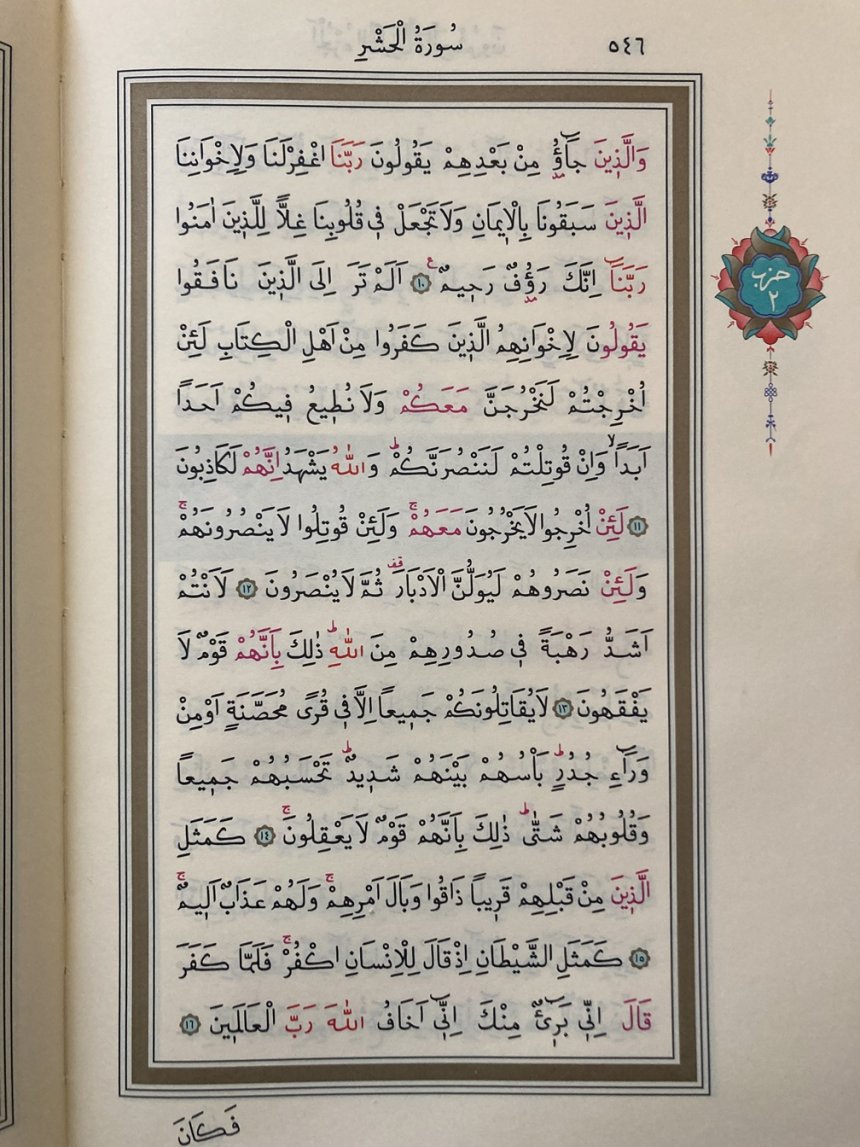 سُورَةُ الْحَشْرِ
٥٤٦
وَالَّذ۪ينَ جَٓاؤُ۫ مِنْ بَعْدِهِمْ يَقُولُونَ رَبَّنَا اغْفِرْلَنَا وَلِاِخْوَانِنَا
الَّذ۪ينَ سَبَقُونَا بِالْا۪يمَانِ وَلَا تَجْعَلْ ف۪ي قُلُوبِنَا غِلًّا لِلَّذ۪ينَ اٰمَنُوا
رَبَّنَٓا اِنَّكَ رَؤُ۫فٌ رَح۪يمٌ۟ ﴿١٠﴾ اَلَمْ تَرَ اِلَى الَّذ۪ينَ نَافَقُوا
يَقُولُونَ لِاِخْوَانِهِمُ الَّذ۪ينَ كَفَرُوا مِنْ اَهْلِ الْكِتَابِ لَئِنْ
اُخْرِجْتُمْ لَنَخْرُجَنَّ مَعَكُمْ وَلَا نُط۪يعُ ف۪يكُمْ اَحَدًا
اَبَدًاۙ وَاِنْ قُوتِلْتُمْ لَنَنْصُرَنَّكُمْۜ وَاللّٰهُ يَشْهَدُ اِنَّهُمْ لَكَاذِبُونَ
﴿١١﴾ لَئِنْ اُخْرِجُوا لَا يَخْرُجُونَ مَعَهُمْۚ وَلَئِنْ قُوتِلُوا لَا يَنْصُرُونَهُمْۚ
وَلَئِنْ نَصَرُوهُمْ لَيُوَلُّنَّ الْاَدْبَارَ۠ ثُمَّ لَا يُنْصَرُونَ ﴿١٢﴾ لَاَنْتُمْ
اَشَدُّ رَهْبَةً ف۪ي صُدُورِهِمْ مِنَ اللّٰهِۜ ذٰلِكَ بِاَنَّهُمْ قَوْمٌ لَا
يَفْقَهُونَ ﴿١٣﴾ لَا يُقَاتِلُونَكُمْ جَم۪يعًا اِلَّا ف۪ي قُرًى مُحَصَّنَةٍ اَوْ مِنْ
وَرَٓاءِ جُدُرٍۜ بَاْسُهُمْ بَيْنَهُمْ شَد۪يدٌۜ تَحْسَبُهُمْ جَم۪يعًا
وَقُلُوبُهُمْ شَتّٰىۜ ذٰلِكَ بِاَنَّهُمْ قَوْمٌ لَا يَعْقِلُونَۚ ﴿١٤﴾ كَمَثَلِ
الَّذ۪ينَ مِنْ قَبْلِهِمْ قَر۪يبًا ذَاقُوا وَبَالَ اَمْرِهِمْۚ وَلَهُمْ عَذَابٌ اَل۪يمٌۚ
﴿١٥﴾ كَمَثَلِ الشَّيْطَانِ اِذْ قَالَ لِلْاِنْسَانِ اكْفُرْۚ فَلَمَّا كَفَرَ
قَالَ اِنّ۪ي بَر۪ٓيءٌ مِنْكَ اِنّ۪ٓي اَخَافُ اللّٰهَ رَبَّ الْعَالَم۪ينَ ﴿١٦﴾
حزب
٢
فَكَانَ